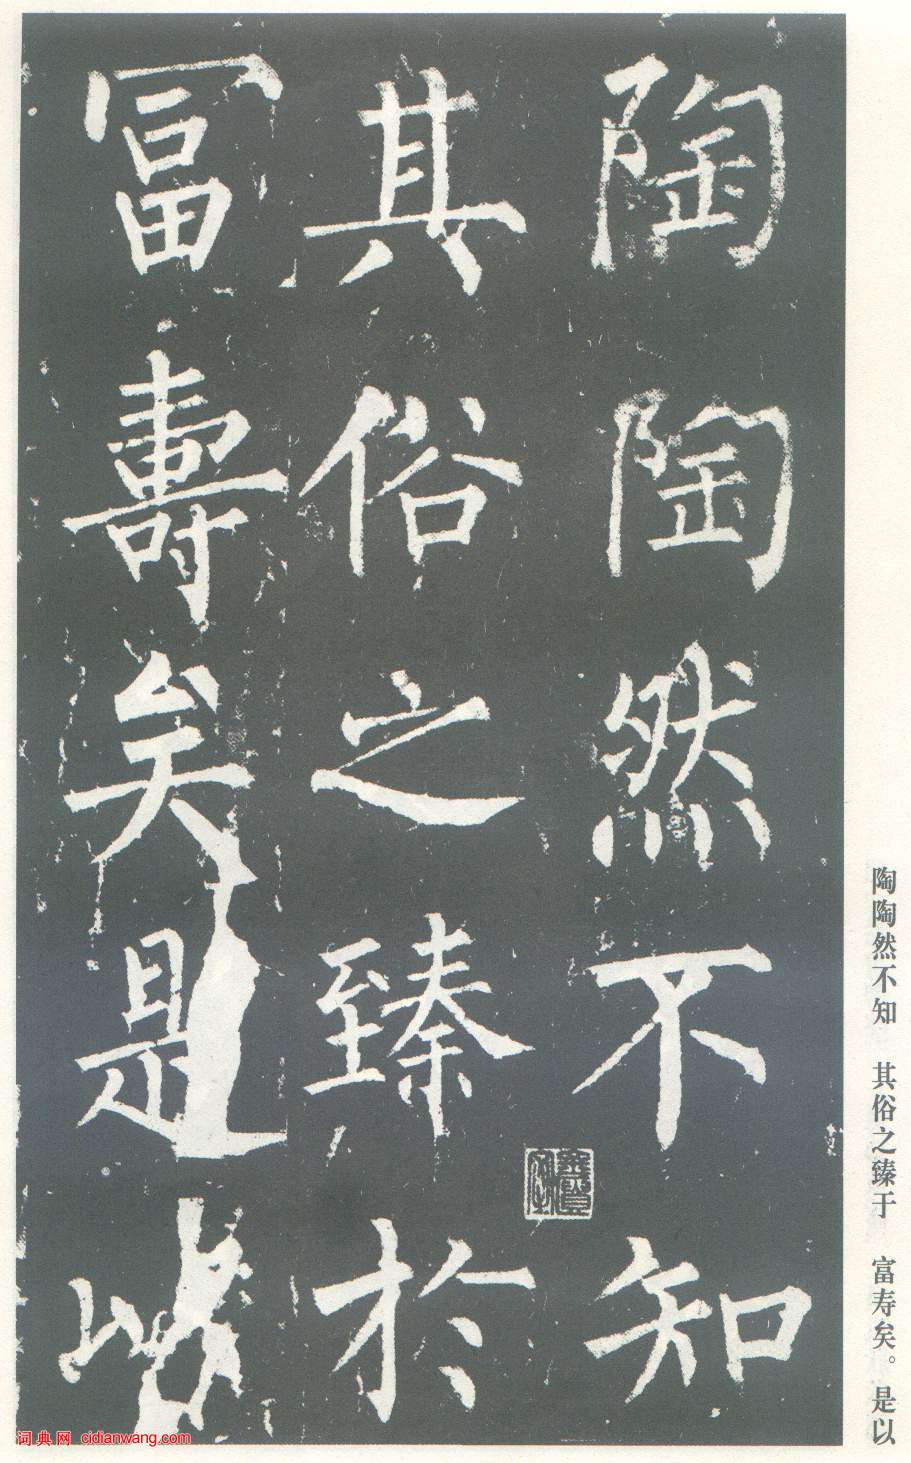 陶陶然不知
其俗之臻於
冨壽矣是以
陶陶然不知 其俗之臻于 富寿矣。是以
词典网 cidianwang.com